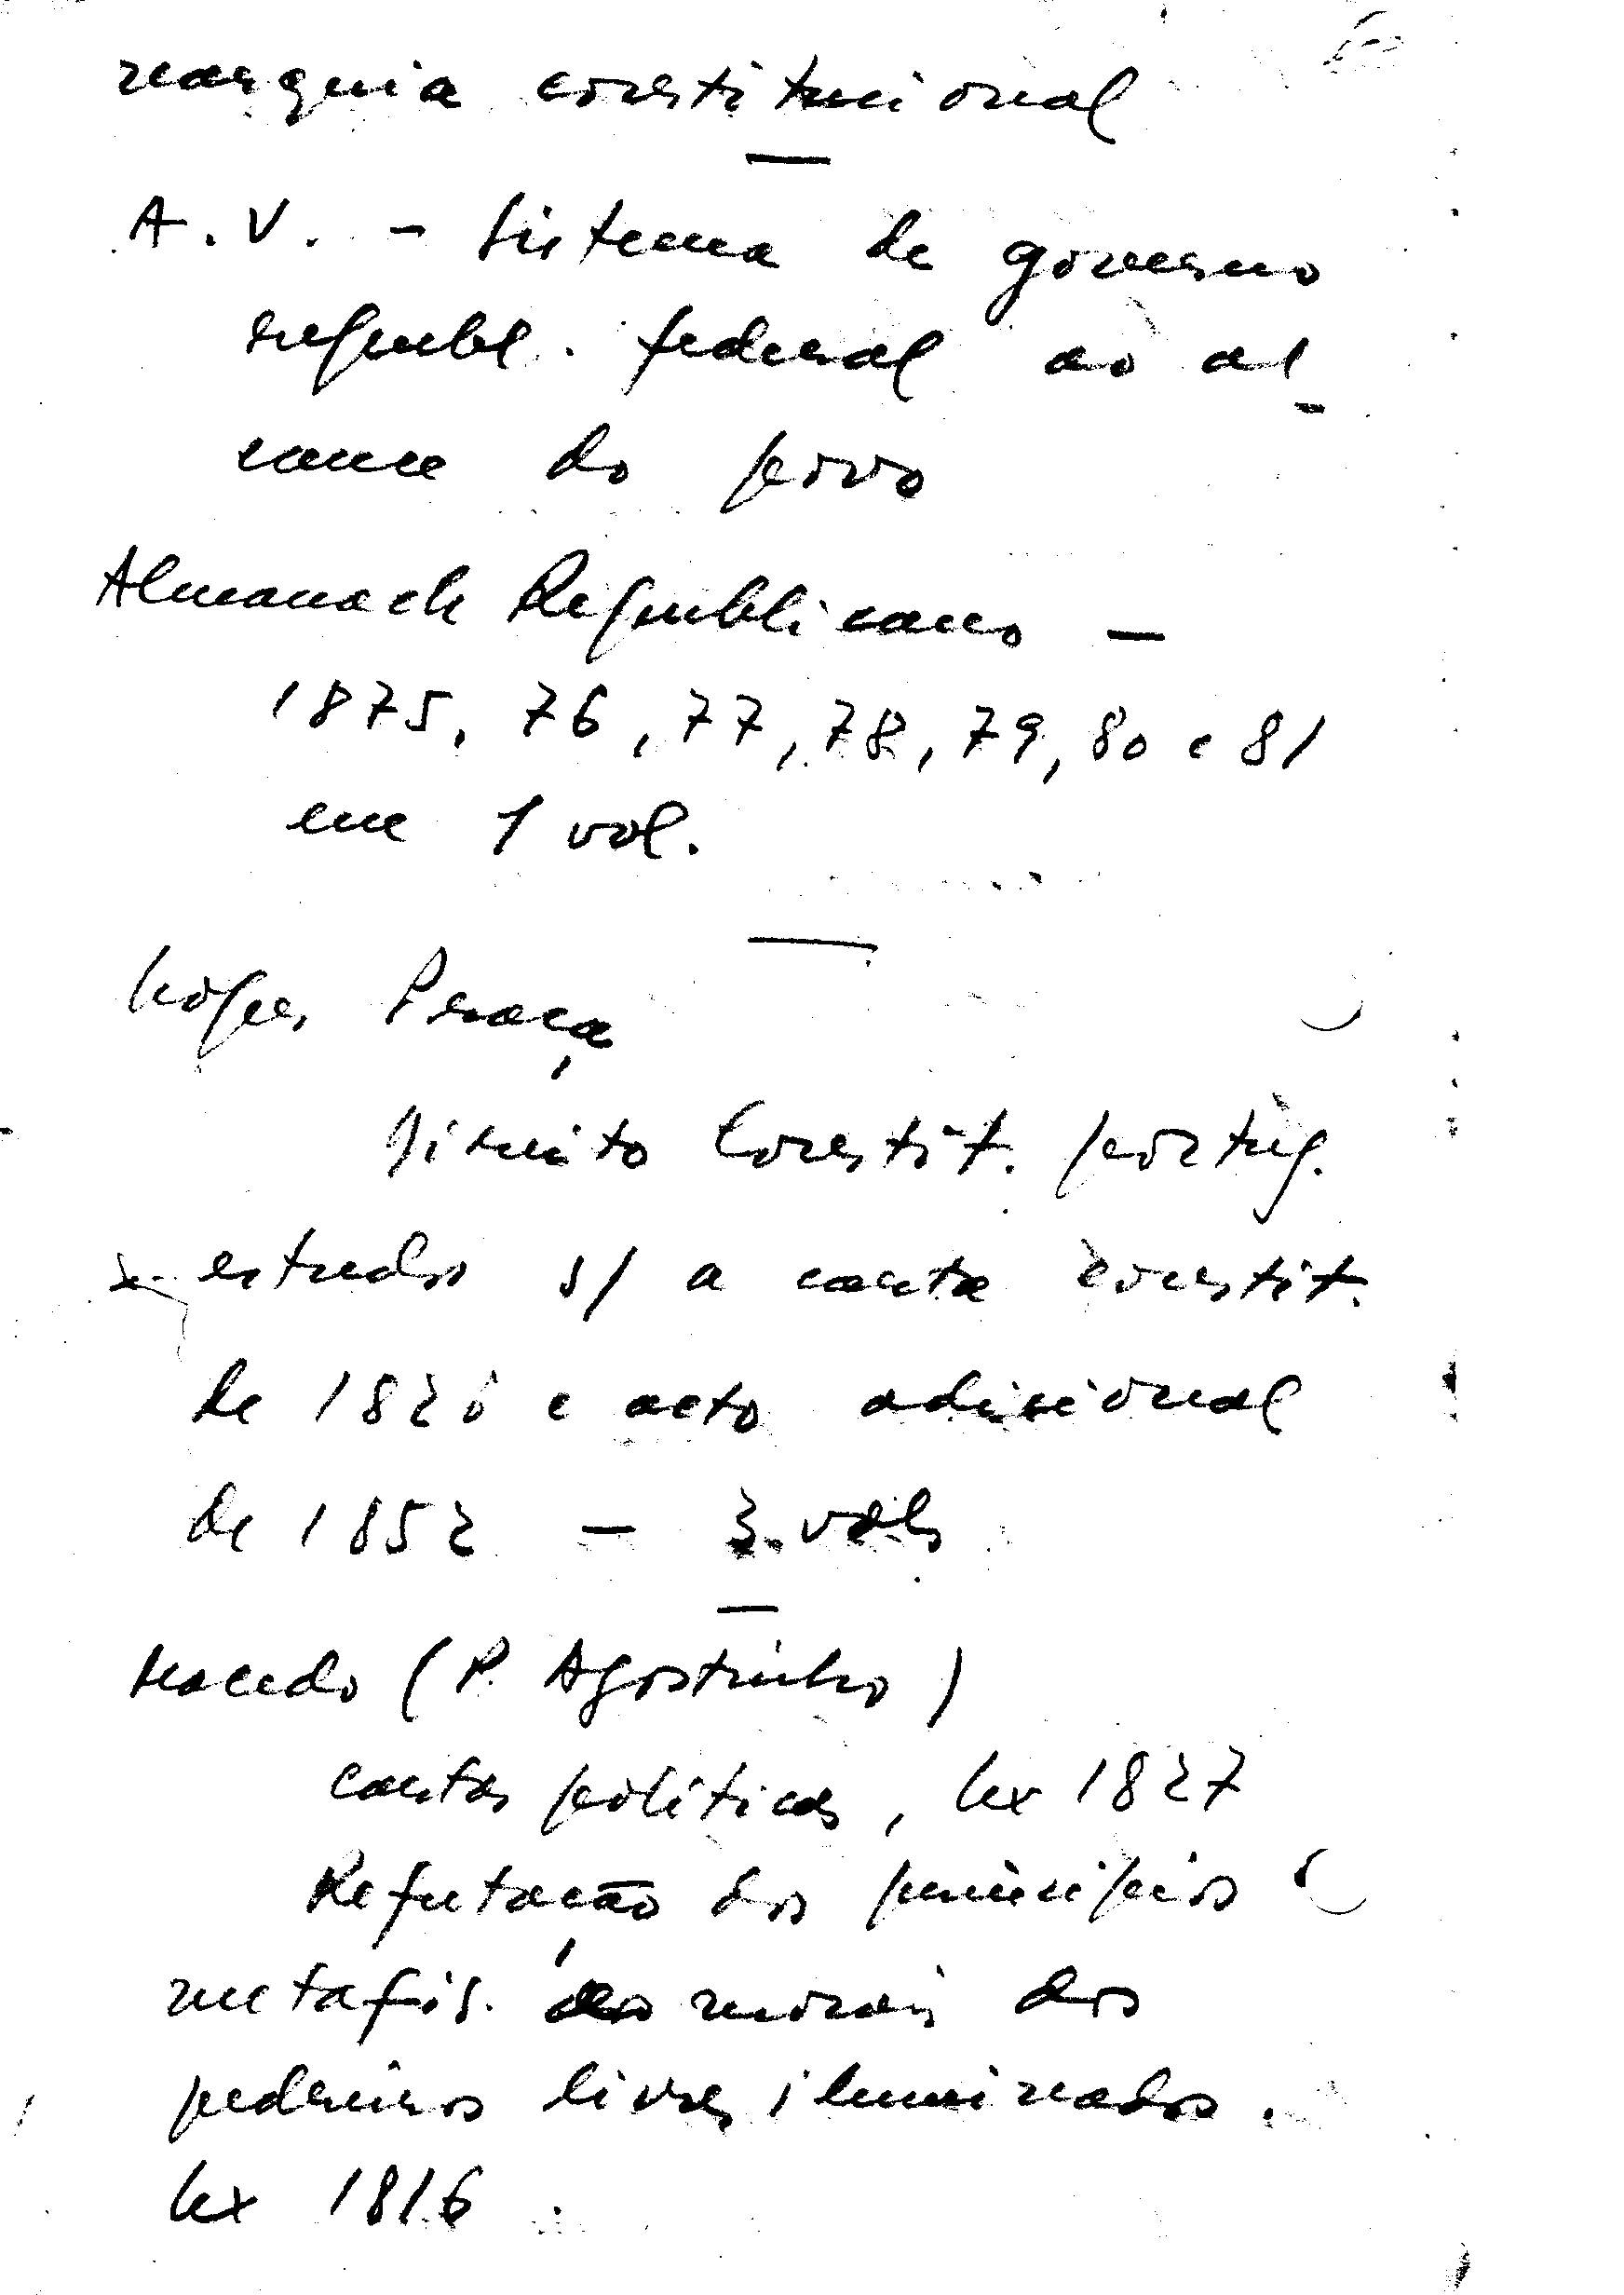 narquia constitucional
A. V. - Sistema de governo
republ. federal ao al
cance do povo
Almanach Republicano -
1875, 76, 77, 78, 79, 80 e 81
em 1 vol.
Lopes Praça
Direito Constit. portug.
estudos s/ a carta constit.
de 1826 e acto adicional
de 1852 - 3 vols
Macedo (P. Agostinho)
cartas políticas, Lx 1827
Refutação dos princípios
metafís. morais dos
pedreiros livres iluminados.
Lx 1816